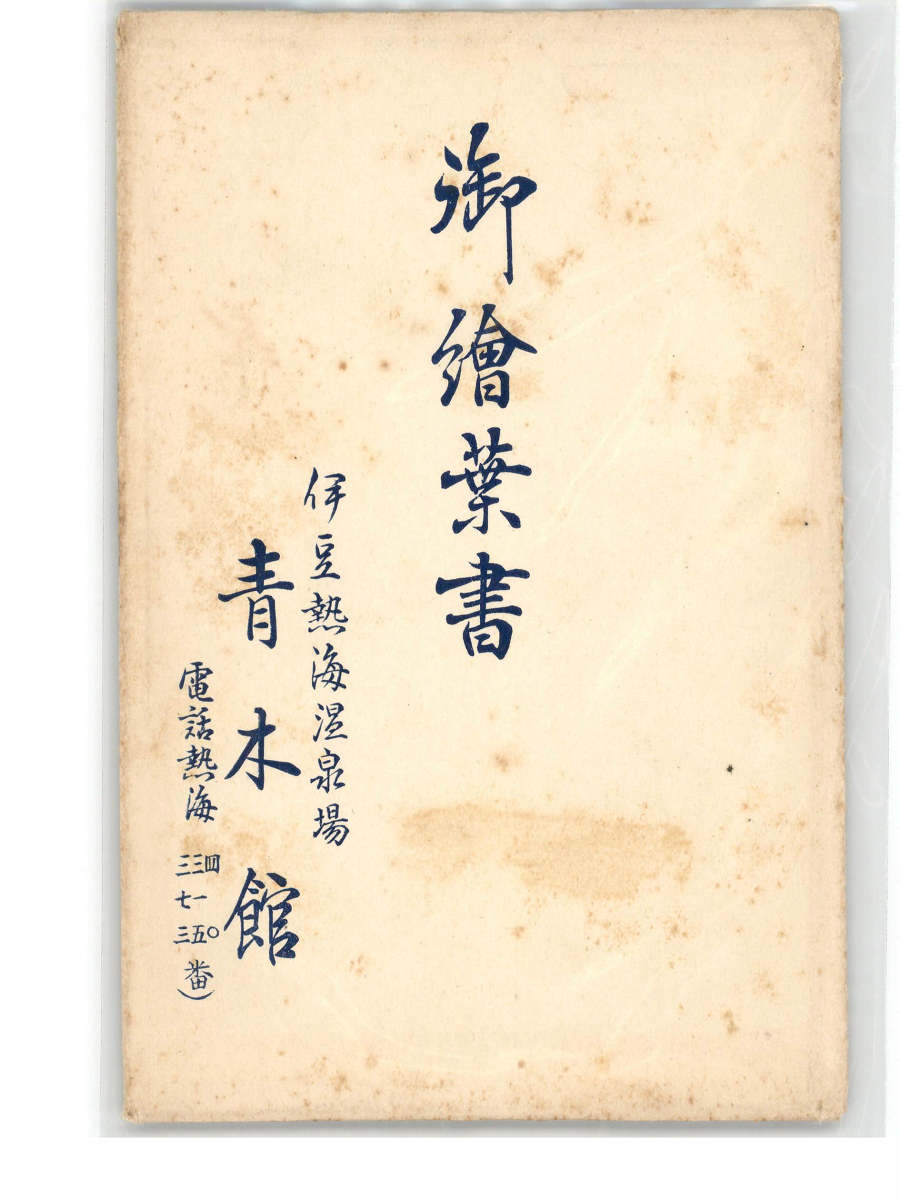 御繪葉書
伊豆熱海温泉場
青木館
電話熱海
四〇
三一五
三七三
番)